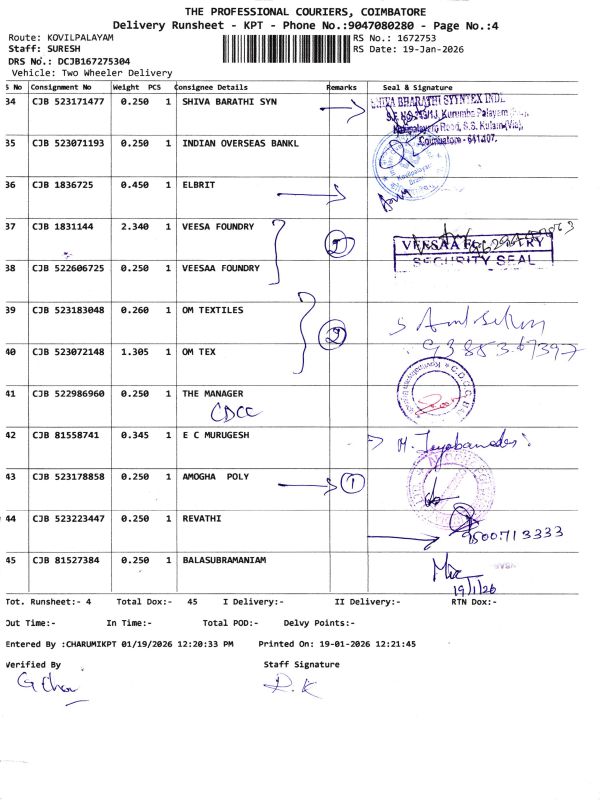 THE PROFESSIONAL COURIERS, COIMBATORE
Delivery Runsheet - KPT - Phone No.:9047080280 - Page No.:4
Route: KOVILPALAYAM RS No.: 1672753
Staff: SURESH RS Date: 19-Jan-2026
DRS No.: DCJB167275304
Vehicle: Two Wheeler Delivery
S No Consignment No Weight PCS Consignee Details Remarks Seal & Signature
34 CJB 523171477 0.250 1 SHIVA BARATHI SYN
SHIVA BHARATHI SYNTEX INDI.
Coimbatore - 641 107.
35 CJB 523071193 0.250 1 INDIAN OVERSEAS BANKL
Kovilpalayam
36 CJB 1836725 0.450 1 ELBRIT
37 CJB 1831144 2.340 1 VEESA FOUNDRY 2
VEESAA FOUNDRY
SECURITY SEAL
38 CJB 522606725 0.250 1 VEESAA FOUNDRY
39 CJB 523183048 0.260 1 OM TEXTILES 2
40 CJB 523072148 1.305 1 OM TEX
41 CJB 522986960 0.250 1 THE MANAGER
CDCC
42 CJB 81558741 0.345 1 E C MURUGESH
43 CJB 523178858 0.250 1 AMOGHA POLY 1
44 CJB 523223447 0.250 1 REVATHI 9500713333
45 CJB 81527384 0.250 1 BALASUBRAMANIAM
19/1/26
Tot. Runsheet:- 4 Total Dox:- 45 I Delivery:- II Delivery:- RTN Dox:-
Out Time:- In Time:- Total POD:- Delvy Points:-
Entered By :CHARUMIKPT 01/19/2026 12:20:33 PM Printed On: 19-01-2026 12:21:45
Verified By Staff Signature
R.K